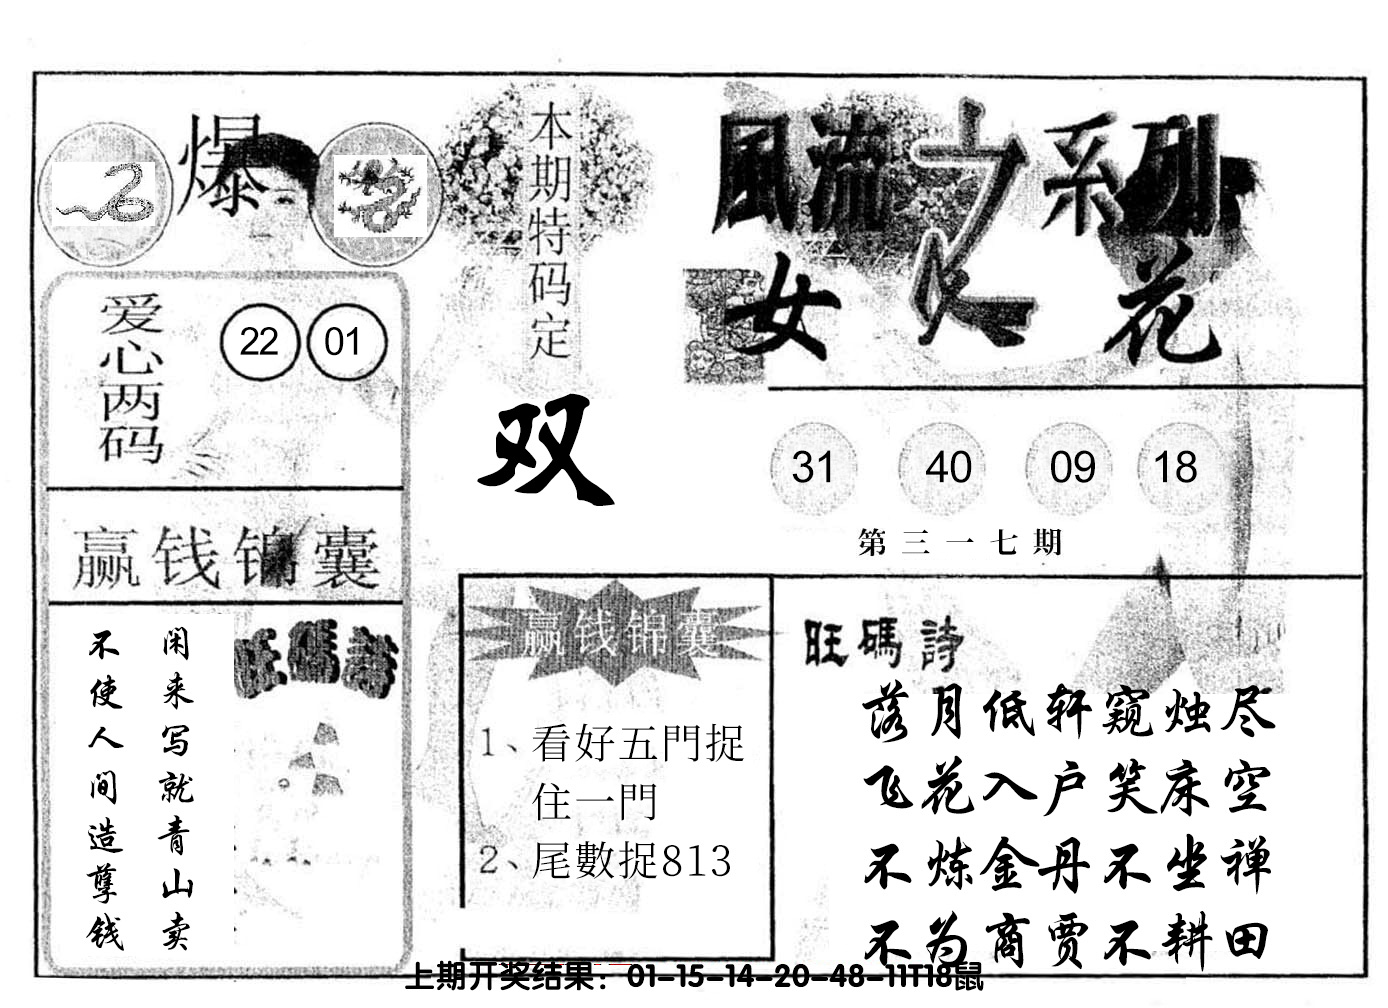 爆
本期特码定
双
風流之系列
女人花
爱心两码
22 01
31 40 09 18
第三一七期
赢钱锦囊
闲来写就青山卖
不使人间造孽钱
旺碼詩
赢钱锦囊
1、看好五門捉
住一門
2、尾數捉813
旺碼詩
落月低轩窥烛尽
飞花入户笑床空
不炼金丹不坐禅
不为商贾不耕田
上期开奖结果：01-15-14-20-48-11T18鼠